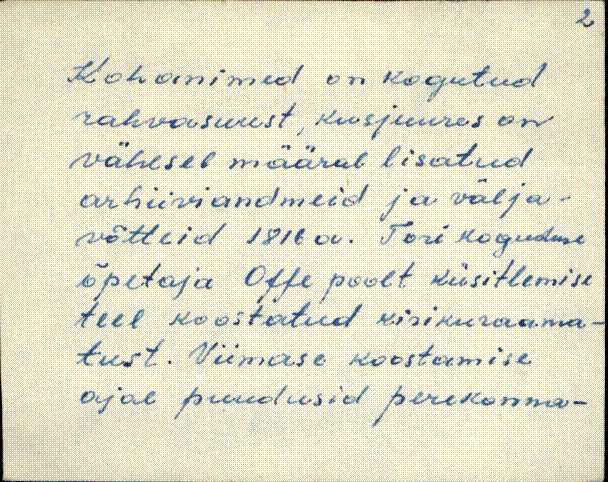 2
Kohanimed on kogutud
rahvasuust, kusjuures on
vähesel määral lisatud
arhiiviandmeid ja välja-
võtteid 1816 a. Tori koguduse
õpetaja Offe poolt küsitlemise
teel koostatud kirikuraama-
tust. Viimase koostamise
ajal puudusid perekonna-